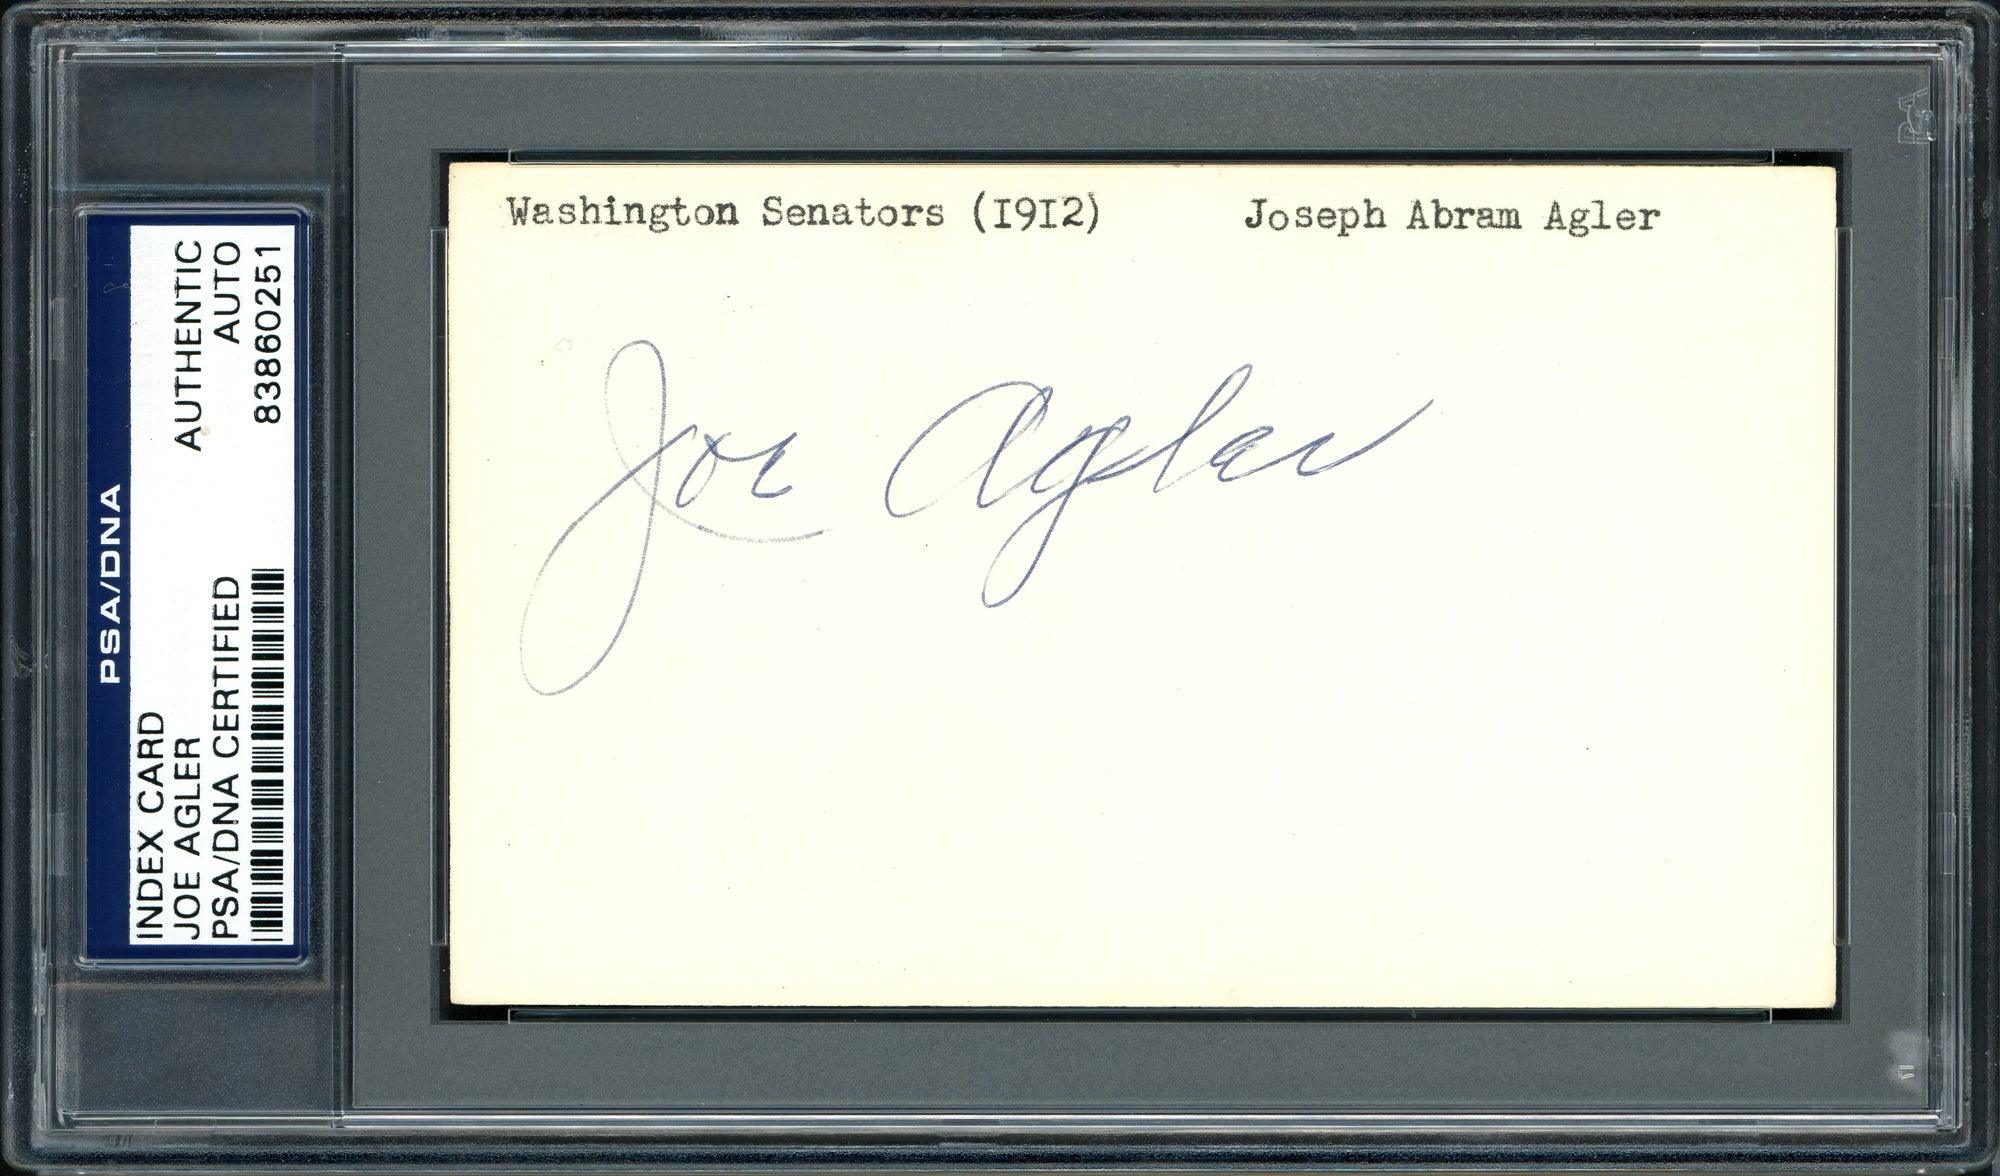 Washington Senators (I9I2) Joseph Abram Agler
Joe Agler
PSA/DNA
INDEX CARD AUTHENTIC
JOE AGLER AUTO
PSA/DNA CERTIFIED 83860251
PSA